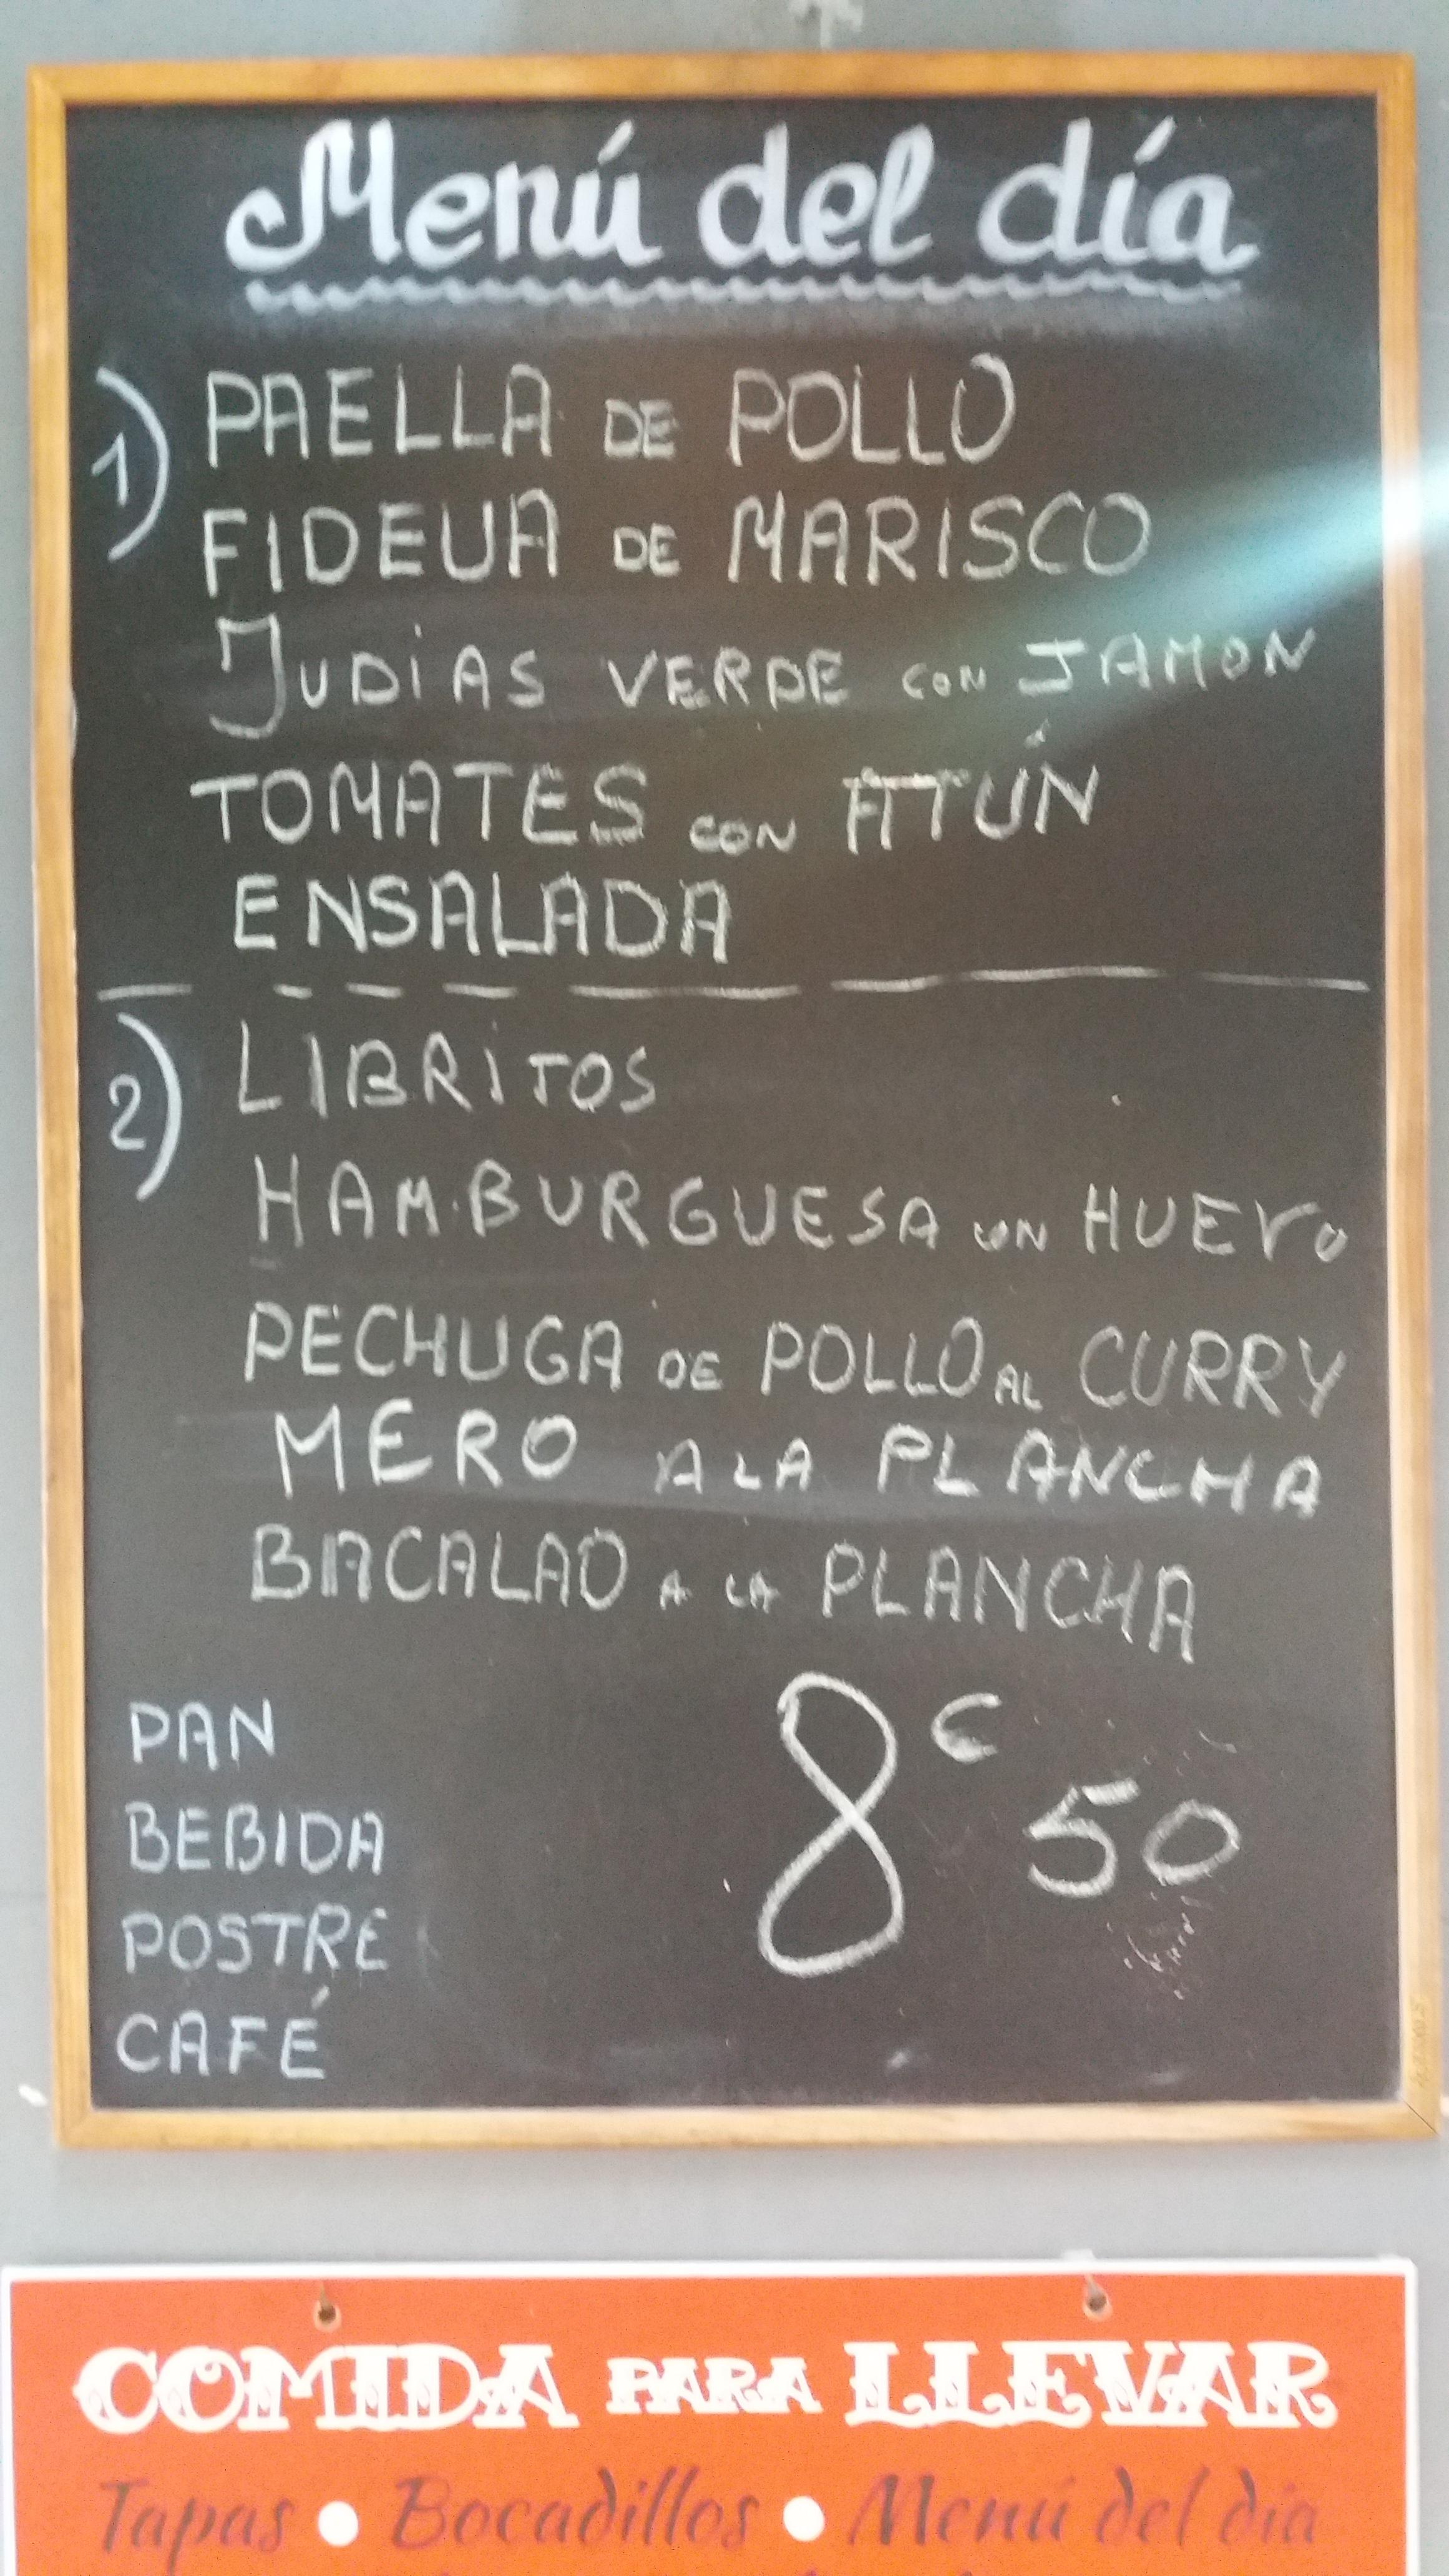 Menú del día
1) PAELLA DE POLLO
FIDEUA DE MARISCO
JUDIAS VERDE CON JAMON
TOMATES CON ATÚN
ENSALADA
2) LIBRITOS
HAMBURGUESA CON HUEVO
PECHUGA DE POLLO AL CURRY
MERO A LA PLANCHA
BACALAO A LA PLANCHA
PAN
BEBIDA
POSTRE
CAFÉ
8€50
COMIDA PARA LLEVAR
Tapas • Bocadillos • Menú del día